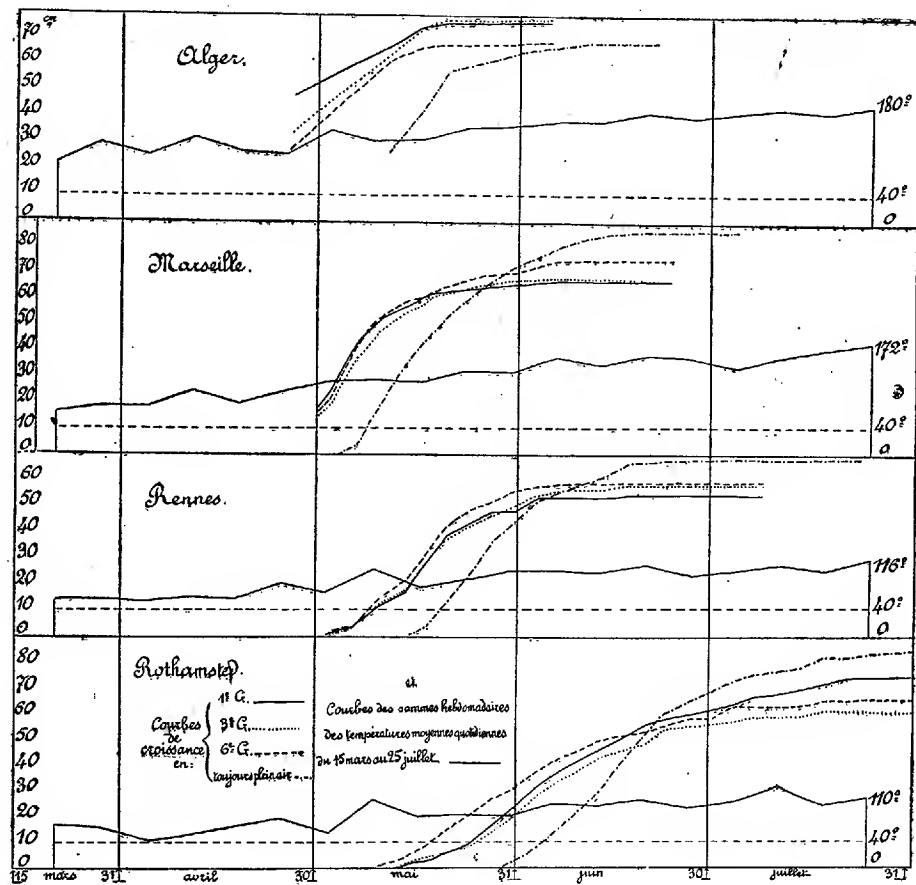 70 cm
60
50
40
30
20
10
0
Alger.
180°
40°
0
80
70
60
50
40
30
20
10
0
Marseille.
172°
40°
0
60
50
40
30
20
10
0
Rennes.
116°
40°
0
80
70
60
50
40
30
20
10
0
Rothamsted.
Courbes
de
croissance
en:
1° G.
3° G.
6° G.
toujours plein air
et
Courbes des sommes hebdomadaires
des températures moyennes quotidiennes
du 15 mars au 25 juillet
110°
40°
0
15 mars 31 avril 30 mai 31 juin 30 juillet 31